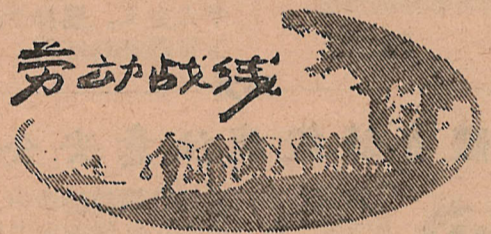 劳动战线